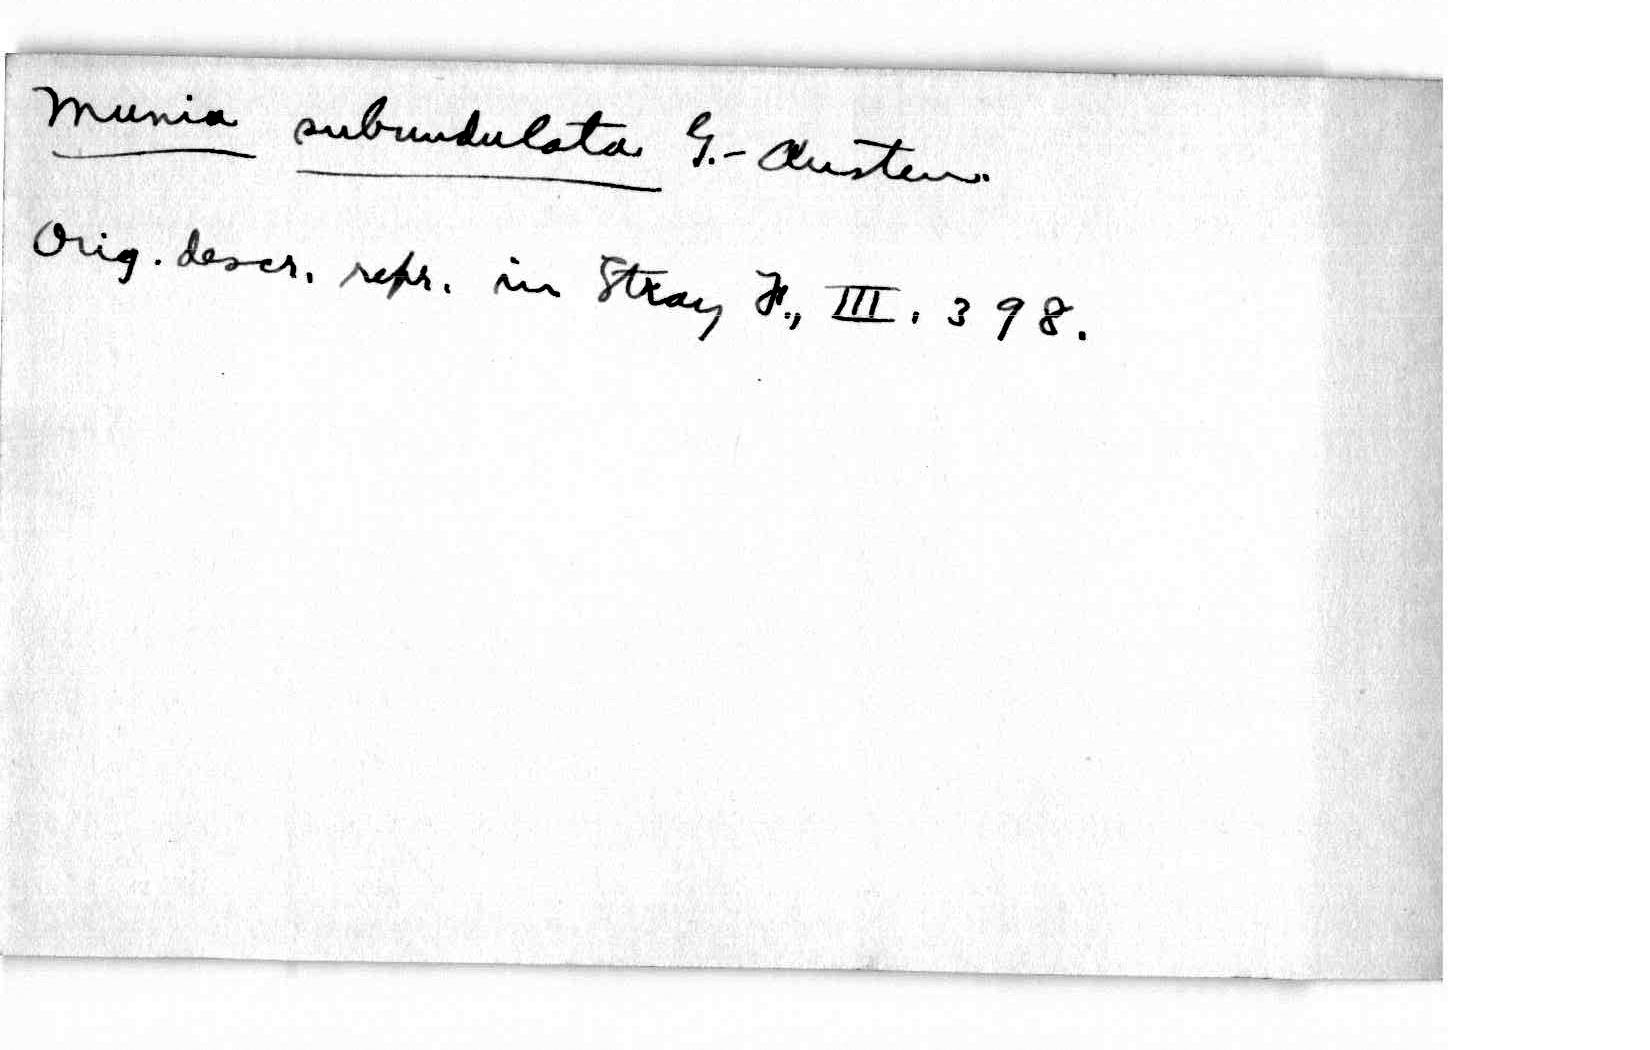 Munia subundulata G.-Austen.
Orig. descr. repr. in Stray F., III, 398.